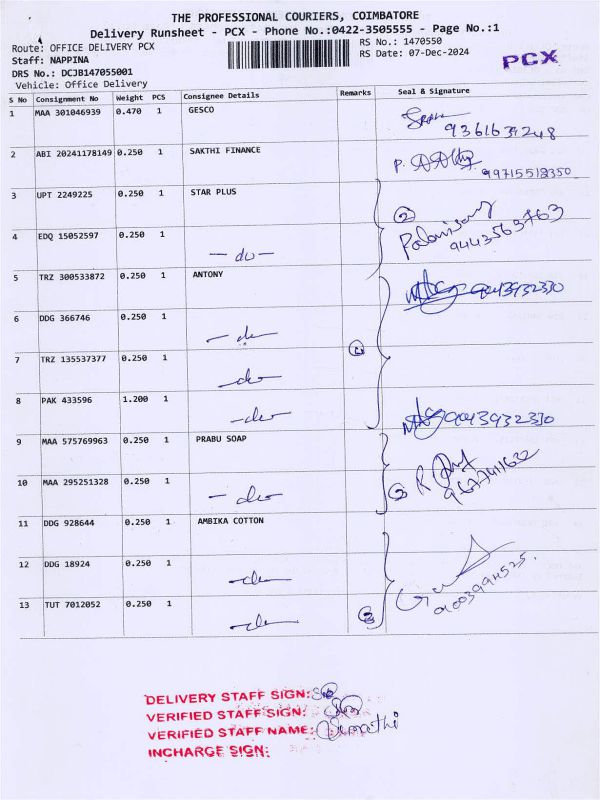 THE PROFESSIONAL COURIERS, COIMBATORE
Delivery Runsheet - PCX - Phone No.:0422-3505555 - Page No.:1
Route: OFFICE DELIVERY PCX RS No.: 1470550
Staff: NAPPINA RS Date: 07-Dec-2024 PCX
DRS No.: DCJB147055001
Vehicle: Office Delivery
S No Consignment No Weight PCS Consignee Details Remarks Seal & Signature
1 MAA 301046939 0.470 1 GESCO
2 ABI 20241178149 0.250 1 SAKTHI FINANCE
3 UPT 2249225 0.250 1 STAR PLUS
2
4 EDQ 15052597 0.250 1 - do - 9443563763
5 TRZ 300533872 0.250 1 ANTONY
6 DDG 366746 0.250 1 - do
7 TRZ 135537377 0.250 1 - do
8 PAK 433596 1.200 1 - do 9043932330
9 MAA 575769963 0.250 1 PRABU SOAP
10 MAA 295251328 0.250 1 - do
11 DDG 928644 0.250 1 AMBIKA COTTON
12 DDG 18924 0.250 1 - do
13 TUT 7012052 0.250 1 - do 3
DELIVERY STAFF SIGN:
VERIFIED STAFF SIGN:
VERIFIED STAFF NAME:
INCHARGE SIGN: